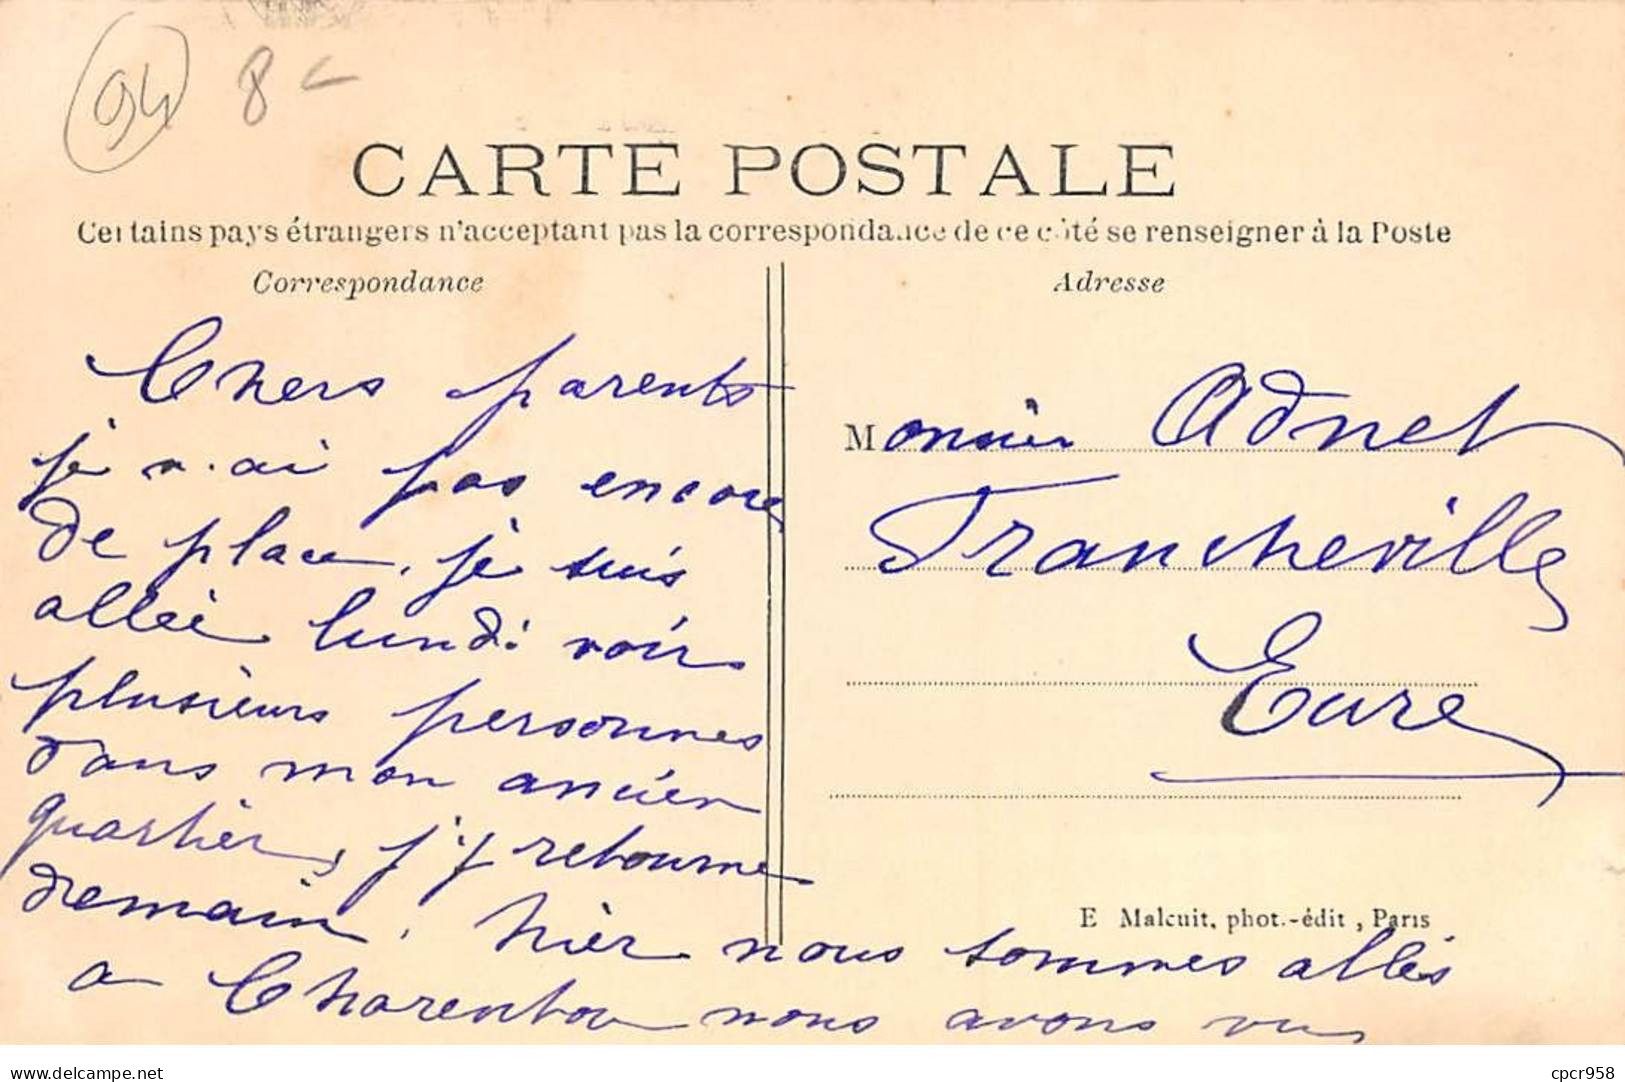 94 8
CARTE POSTALE
Certains pays étrangers n'acceptant pas la correspondance de ce côté se renseigner à la Poste
Correspondance
Adresse
Chers parents
je n'ai pas encore
de place, je suis
allée lundi voir
plusieurs personnes
dans mon ancien
quartier, j'y retourne
demain. hier nous sommes allés
a Charenton nous avons vu
Monsieur Adnet
Francheville
Eure
E Malcuit, phot.-édit, Paris
delcampe.net
cpcr958